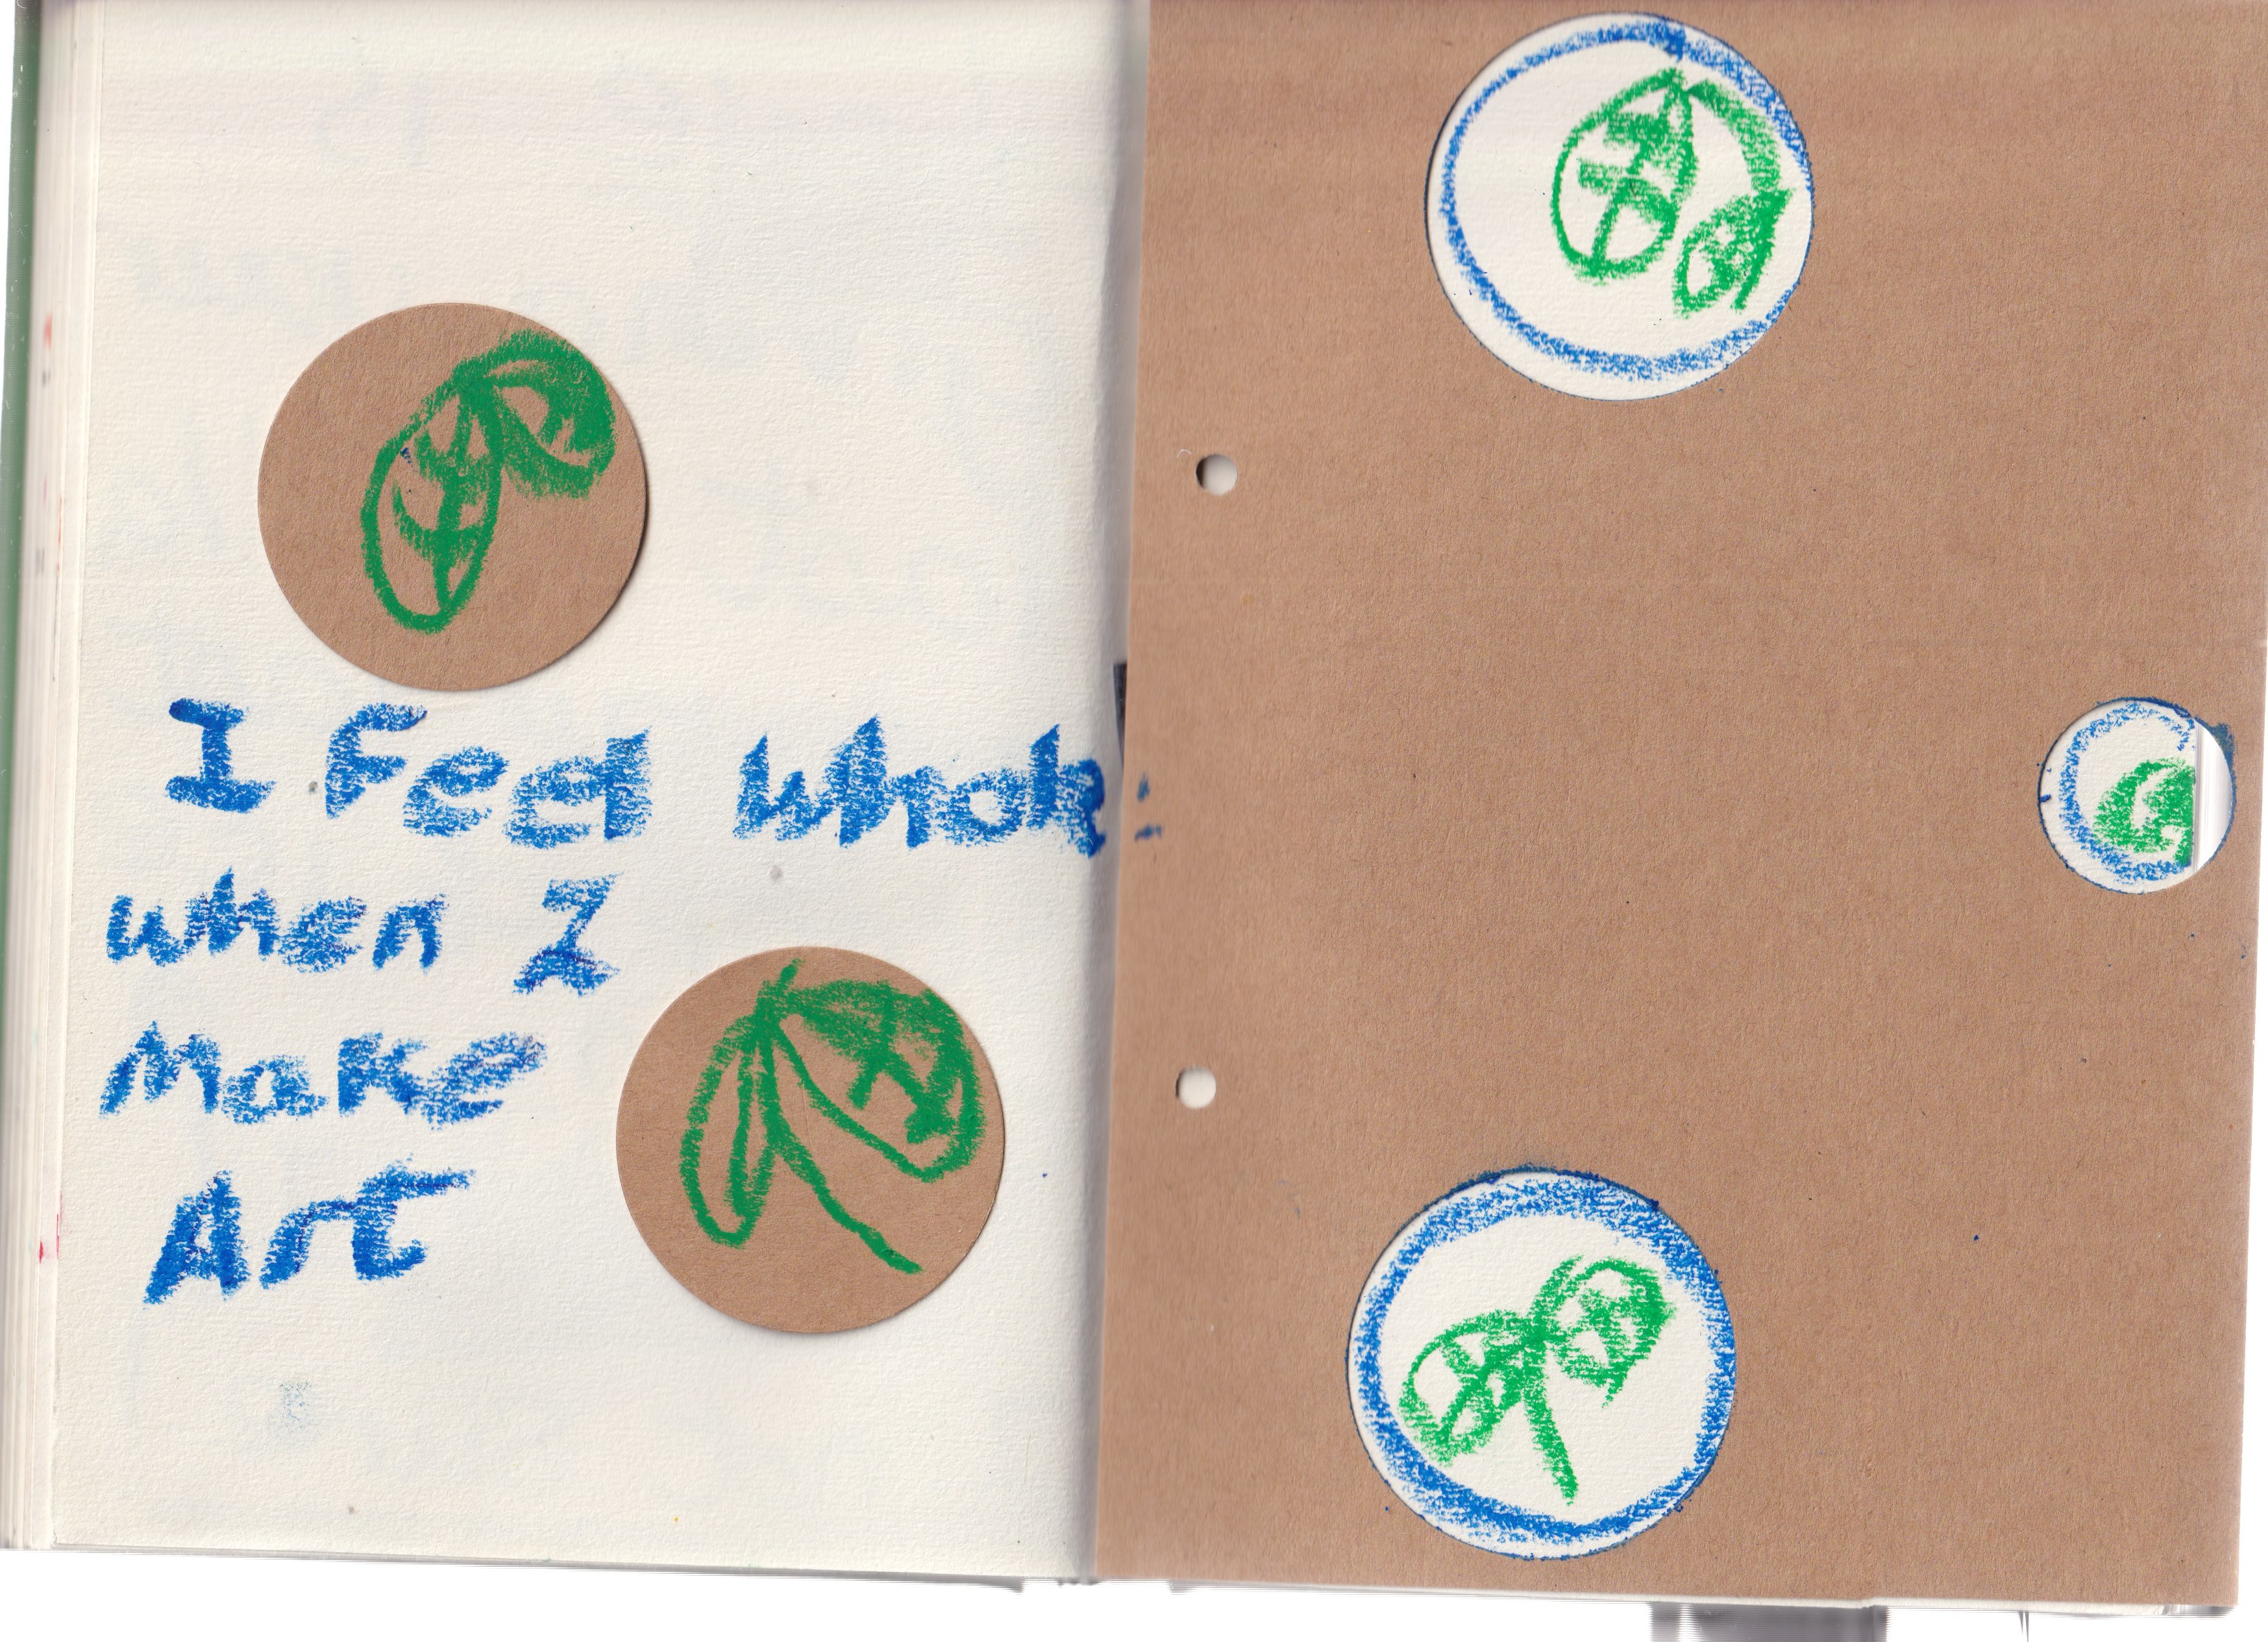 I Feel whole
when I
Make
Art